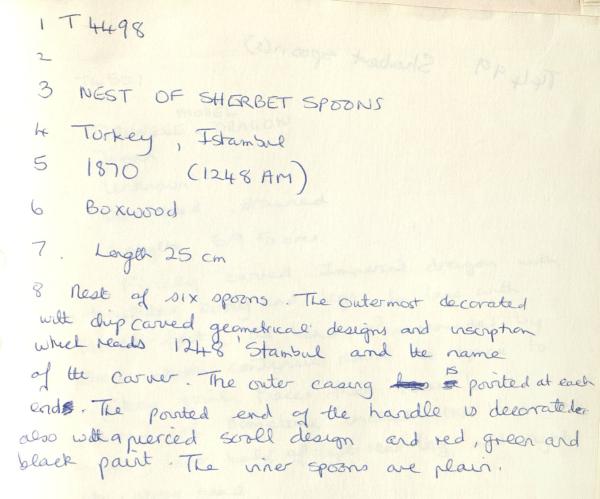 1 T 4498
2
3 NEST OF SHERBET SPOONS
4 Turkey, Istambul
5 1870 (1248 AM)
6 Boxwood
7. Length 25 cm
8 Nest of six spoons. The outermost decorated
with chip carved geometrical designs and inscription
which reads 1248 'Stambul and the name
of the carver. The outer casing is pointed at each
end. The pointed end of the handle is decorated
also with a pierced scroll design and red, green and
black paint. The inner spoons are plain.